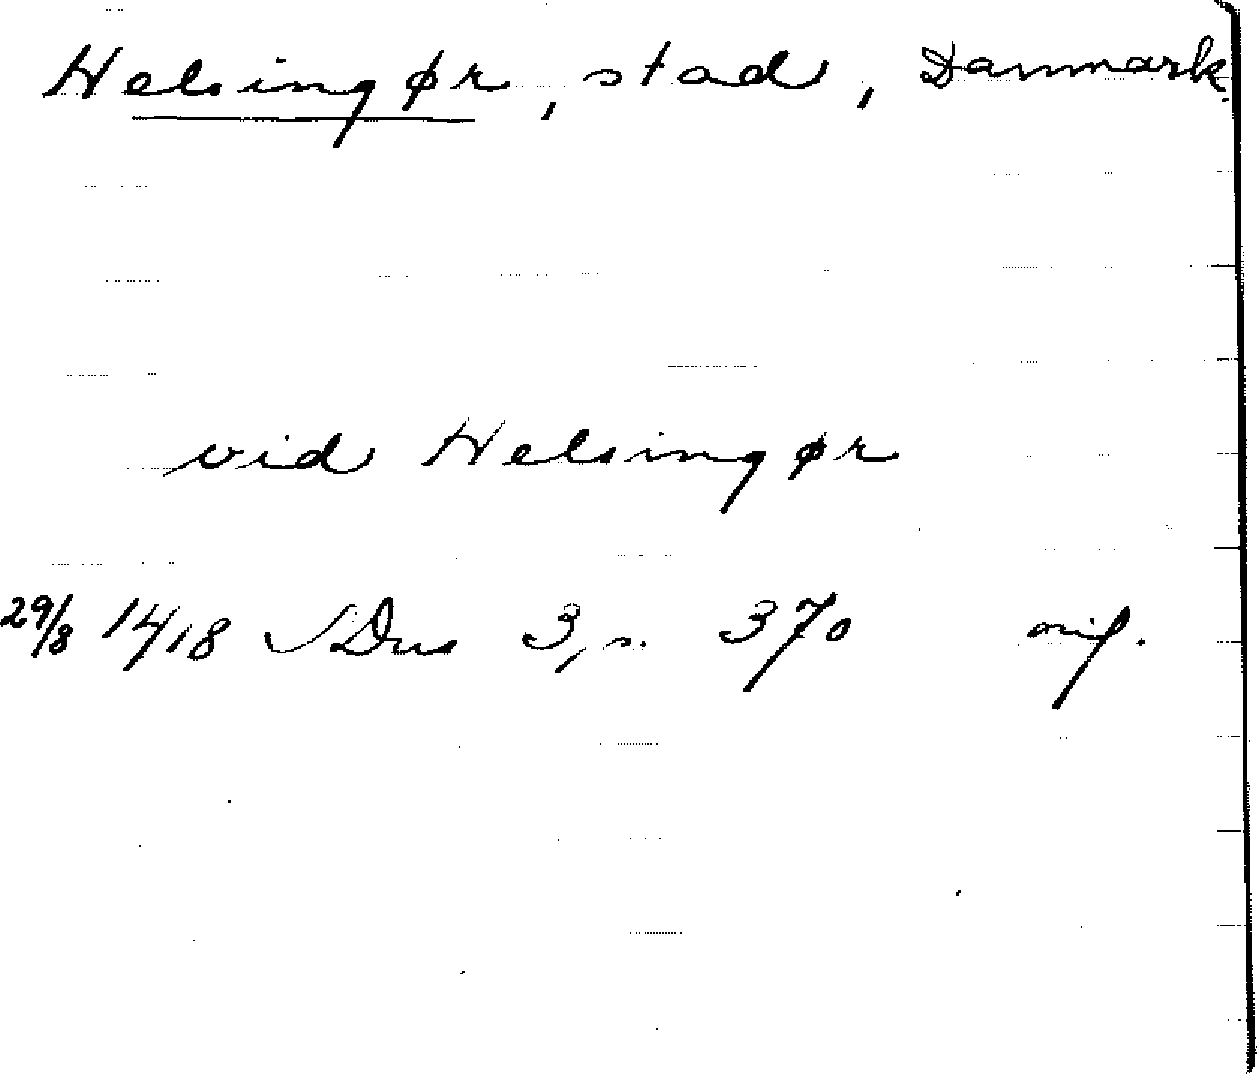 Helsingør, stad, Danmark.
vid Helsingør
29/8 1418 SDns 3, s. 370